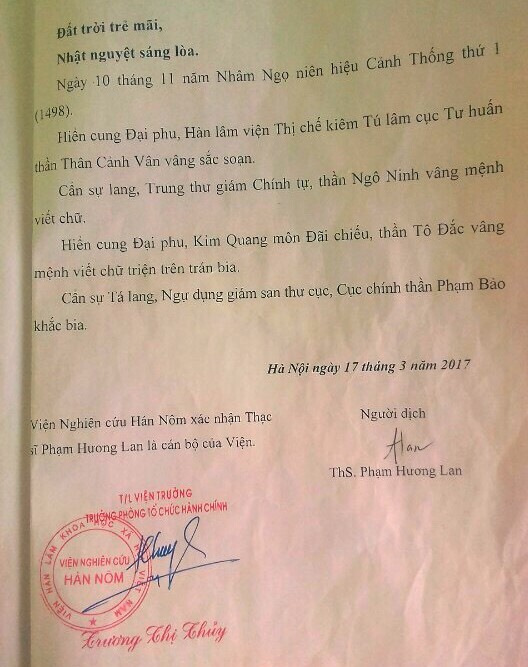 Đất trời trẻ mãi,
Nhật nguyệt sáng lòa.
Ngày 10 tháng 11 năm Nhâm Ngọ niên hiệu Cảnh Thống thứ 1
(1498).
Hiển cung Đại phu, Hàn lâm viện Thị chế kiêm Tú lâm cục Tư huấn
thần Thân Cảnh Vân vâng sắc soạn.
Cẩn sự lang, Trung thư giám Chính tự, thần Ngô Ninh vâng mệnh
viết chữ.
Hiển cung Đại phu, Kim Quang môn Đãi chiếu, thần Tô Đắc vâng
mệnh viết chữ triện trên trán bia.
Cẩn sự Tá lang, Ngự dụng giám san thư cục, Cục chính thần Phạm Bảo
khắc bia.
Hà Nội ngày 17 tháng 3 năm 2017
Viện Nghiên cứu Hán Nôm xác nhận Thạc
sĩ Phạm Hương Lan là cán bộ của Viện.
Người dịch
Hlan
ThS. Phạm Hương Lan
T/L VIỆN TRƯỞNG
TRƯỞNG PHÒNG TỔ CHỨC HÀNH CHÍNH
VIỆN HÀN LÂM KHOA HỌC XÃ HỘI VIỆT NAM
VIỆN NGHIÊN CỨU
HÁN NÔM
Trương Thị Thủy